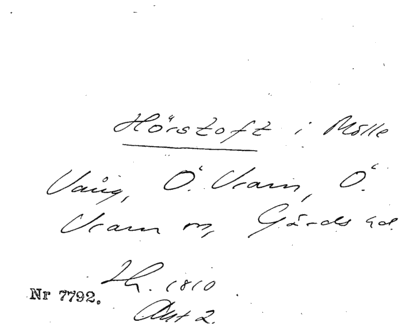 Hörstoft i Mölle
Vång, Ö. Vram, Ö.
Vram sn, Gärds hd.
Lh. 1810
Nr 7792.
Akt 2.